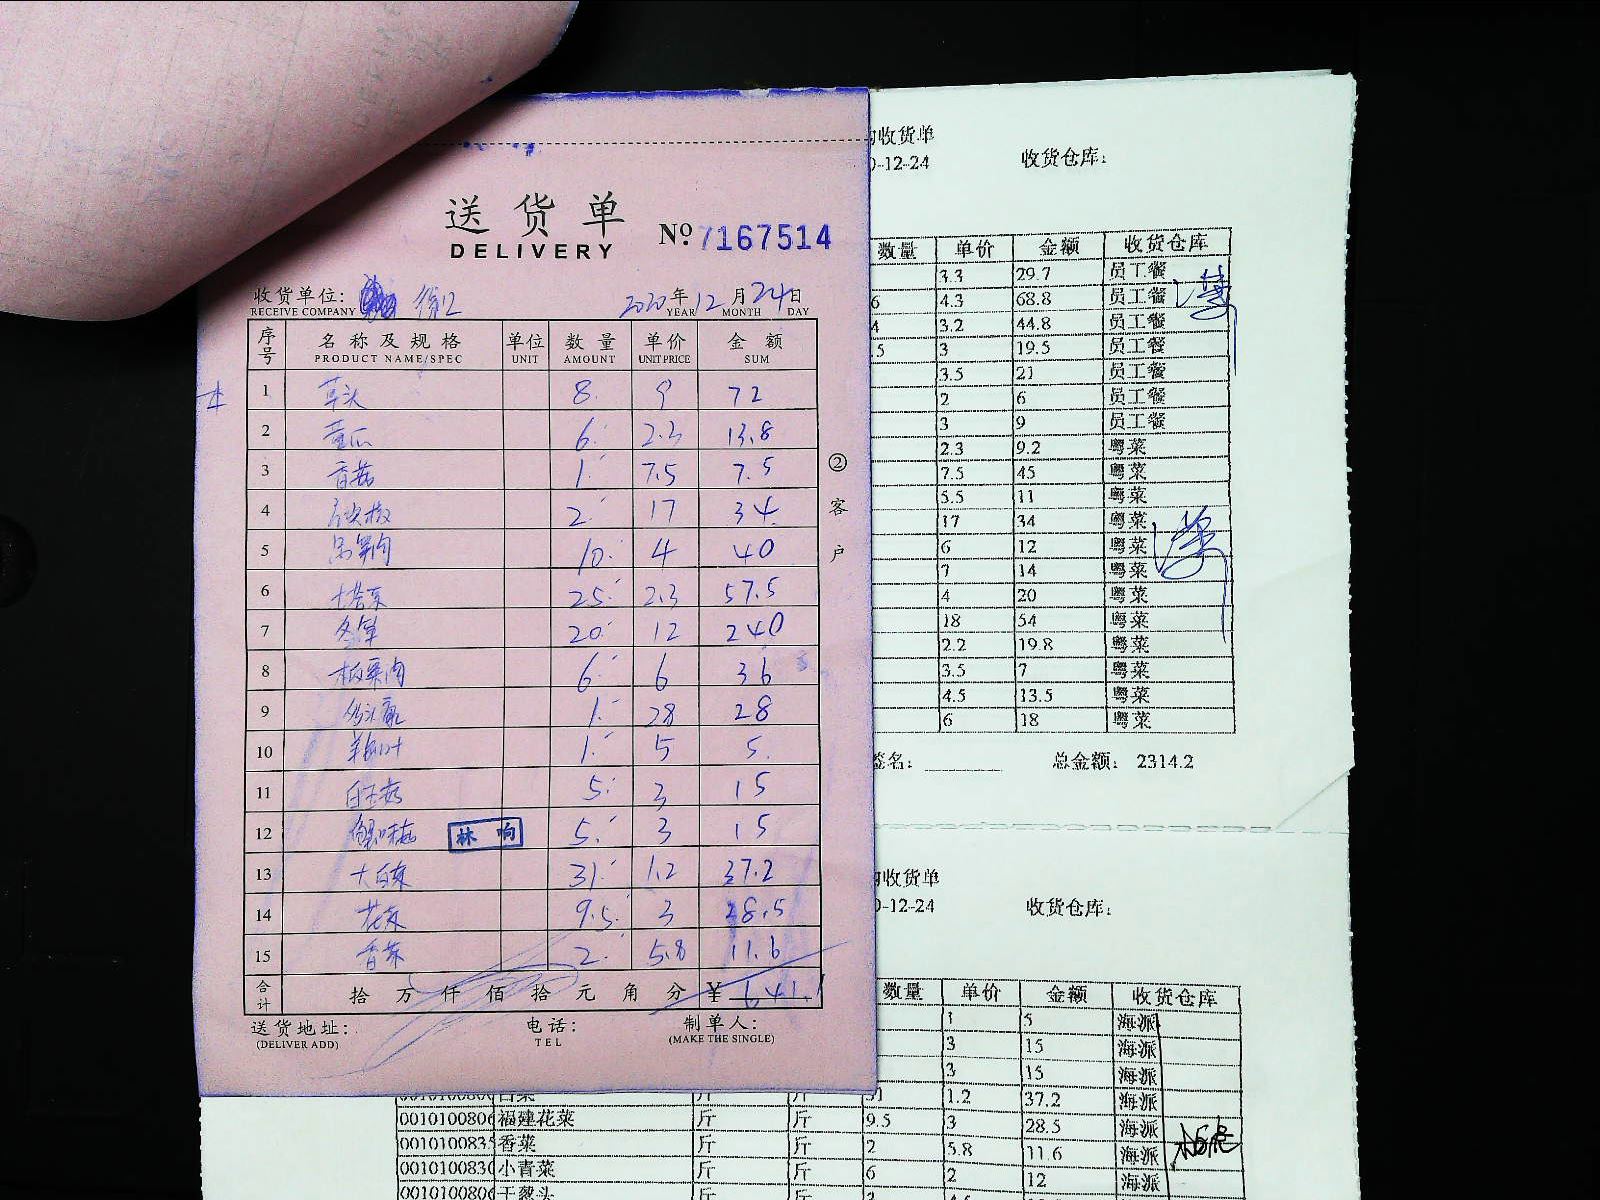 送货单
DELIVERY
No 7167514
收货单位:
RECEIVE COMPANY
2020年12月24日
YEAR MONTH DAY
序号 名称及规格 单位 数量 单价 金额
PRODUCT NAME/SPEC UNIT AMOUNT UNIT PRICE SUM
1 草头 8 9 72
2 黄瓜 6 2.3 13.8
3 香菇 1 7.5 7.5
4 2 17 34
5 10 4 40
6 塔菜 25 2.3 57.5
7 冬笋 20 12 240
8 板栗肉 6 6 36
9 1 28 28
10 1 5 5
11 白玉菇 5 3 15
12 蟹味菇 5 3 15
林响
13 大白菜 31 1.2 37.2
14 花菜 9.5 3 28.5
15 香菜 2 5.8 11.6
合计 拾万仟佰拾元角分 ¥ 641.1
送货地址: 电话: 制单人:
(DELIVER ADD) TEL (MAKE THE SINGLE)
②客户
收货单
0-12-24 收货仓库:
数量 单价 金额 收货仓库
3.3 29.7 员工餐
6 4.3 68.8 员工餐
4 3.2 44.8 员工餐
.5 3 19.5 员工餐
3.5 21 员工餐
2 6 员工餐
3 9 员工餐
2.3 9.2 粤菜
7.5 45 粤菜
5.5 11 粤菜
17 34 粤菜
6 12 粤菜
7 14 粤菜
4 20 粤菜
18 54 粤菜
2.2 19.8 粤菜
3.5 7 粤菜
4.5 13.5 粤菜
6 18 粤菜
签名: 总金额: 2314.2
收货单
0-12-24 收货仓库:
数量 单价 金额 收货仓库
1 5 海派
3 15 海派
3 15 海派
白菜 斤 斤 31 1.2 37.2 海派
0010100806 福建花菜 斤 斤 9.5 3 28.5 海派
0010100835 香菜 斤 斤 2 5.8 11.6 海派
0010100830 小青菜 斤 斤 6 2 12 海派